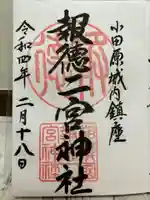 小田原城内鎮座
報徳二宮神社
令和四年二月十八日